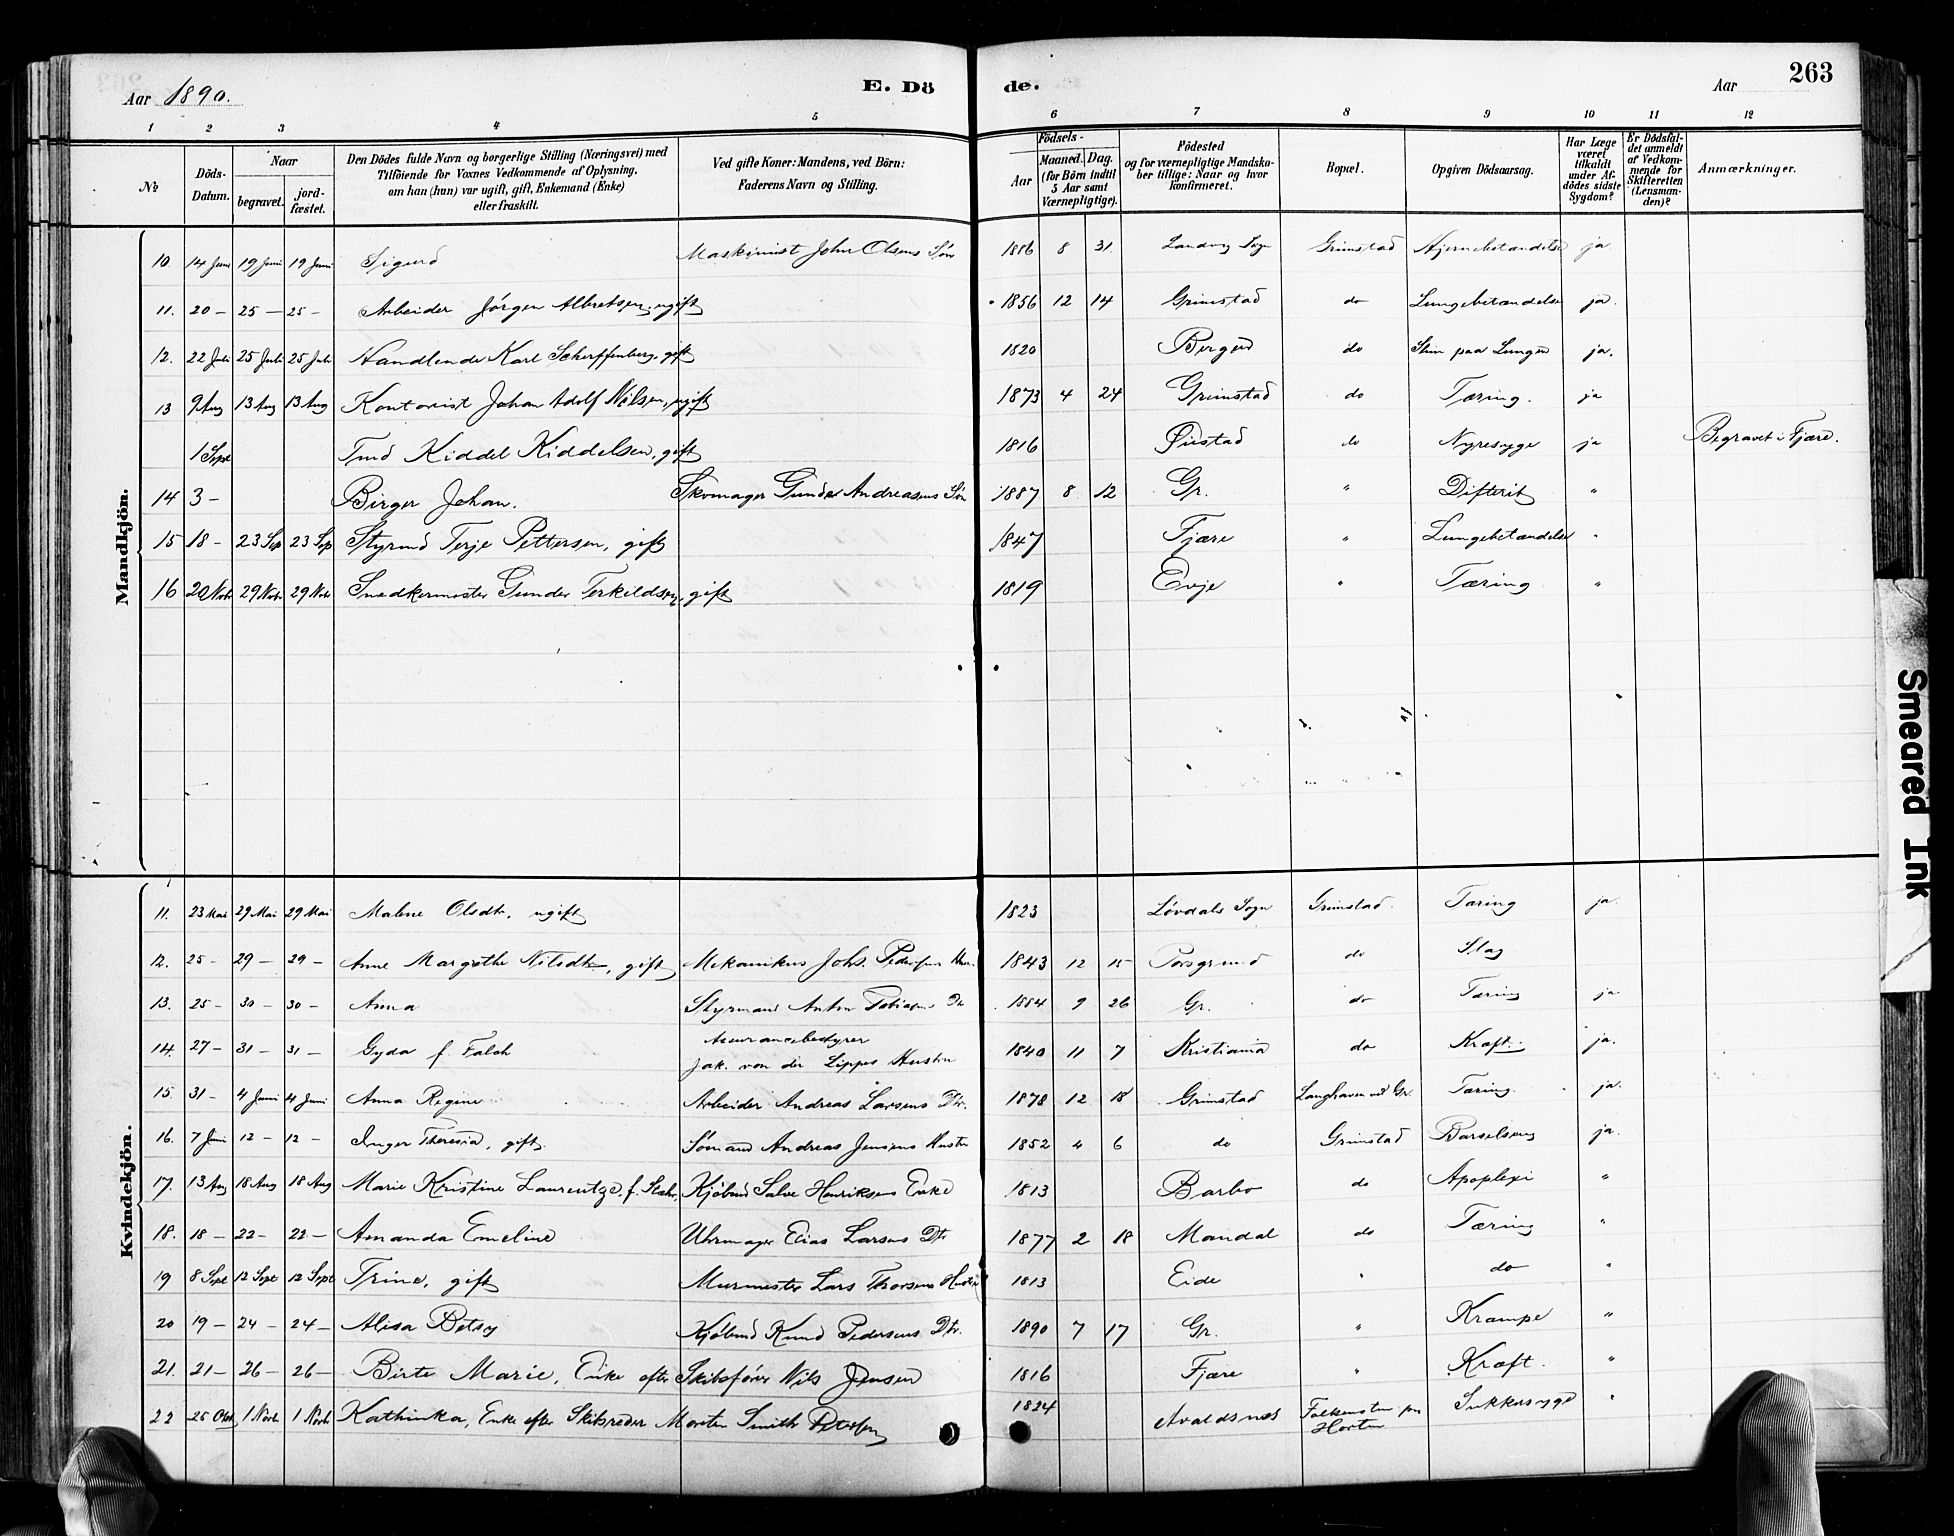 Aar 1890. E. Dö
de. Aar 263
1 2 3 4 5 6 7 8 9 10 11 12
No
Döds-Datum.
Naar begravet. jord-fæstet.
Den Dödes fulde Navn og borgerlige Stilling (Næringsvei) med Tilföiende for Voxnes Vedkommende af Oplysning, om han (hun) var ugift, gift, Enkemand (Enke) eller fraskilt.
Ved gifte Koner: Mandens, ved Börn: Faderens Navn og Stilling.
Födsels-
Aar
Maaned. Dag. (for Börn indtil 5 Aar samt Værnepligtige).
Födested og for værnepligtige Mandskaber tillige: Naar og hvor konfirmeret.
Bopæl.
Opgiven Dödsaarsag.
Har Læge været tilkaldt under Afdödes sidste Sygdom?
Er Dödsfaldet anmeldt af Vedkommende for Skifteretten (Lensmanden)?
Anmærkninger.
Mandkjön.
10. 14 Juni 19 Juni 19 Juni Sigurd Maskinist John Olsens Søn 1886 8 31 Landvig Sogn Grimstad Hjernebetændelse ja
11. 20 — 25 — 25 — Arbeider Jörgen Albretsen, ugift 1856 12 14 Grimstad do Lungebetændelse ja.
12. 22 Juli 25 Juli 25 Juli Handlende Karl Scherffenberg, gift 1820 Bergen do paa Lungen ja.
13 9 Aug 13 Aug 13 Aug Kontorist Johan Adolf Nilsen, ugift 1873 4 24 Grimstad do Tæring. ja
1 Sept Kiddel Kiddelsen, gift 1816 Øiestad do Nyresyge ja Begravet i Fjære.
14 3 — Birger Johan. Skomager Gunder Andreasens Søn 1887 8 12 Gr. " Difterit "
15 18 — 23 Sep 23 Sep Styrmd Terje Pettersen, gift 1847 Fjære " Lungebetændelse "
16 20 Novb. 29 Novb. 29 Novb. Snedkermester Gunder Terkildsen, gift 1819 Evje " Tæring "
Kvindekjön.
11. 23 Mai 29 Mai 29 Mai Malene Olsdtr, ugift 1823 Løvdals Sogn Grimstad. Tæring ja
12. 25 — 29 — 29 — Anne Margethe Nilsdtr, gift Mekanikus Johs. Pedersens 1843 12 15 Porsgrund do Slag
13. 25 — 30 — 30 — Anna Styrmand Anton Tobiasens Dtr 1884 9 26 Gr. do Tæring ja
14. 27 — 31 — 31 — Gyda f. Falch Assurancebestyrer
Jak. von der Lippes Hustru 1840 11 7 Kristiania do Kræft. ja.
15. 31 — 4 Juni 4 Juni Anna Regine Arbeider Andreas Larsens Dtr. 1878 12 18 Grimstad Langhaven ved Gr. Tæring. ja.
16. 7 Juni 12 — 12 — Inger Theresia, gift. Sømand Andreas Jensens Hustru 1852 4 6 do Grimstad Barselseng ja.
17. 13 Aug 18 Aug 18 Aug Marie Kristine Laurentze, f. Kjøbmd Salve Henriksens Enke 1813 Barbo do Apoplexi "
18. 18 — 22 — 22 — Amanda Emeline Uhrmager Elias Larsens Dtr 1877 2 18 Mandal do Tæring "
19 8 Sept 12 Sept 12 Sept Trine, gift Murmester Lars Thorsens Hustru 1813 Eide " do "
20 19 — 24 — 24 — Alisa Betsy Kjøbmd Knud Pedersens Dtr. 1890 7 17 Gr. " Krampe "
21. 21 — 26 — 26 — Birte Marie, Enke efter Skibsfører Nils Jensen 1816 Fjære " Kræft. "
22 25 Oktb. 1 Novb. 1 Novb. Kathinka, Enke efter Skibsreder Morten Smith Petersen 1824 Avaldsnes Falkensten pr Horten Sukkersyge "
Smeared Ink